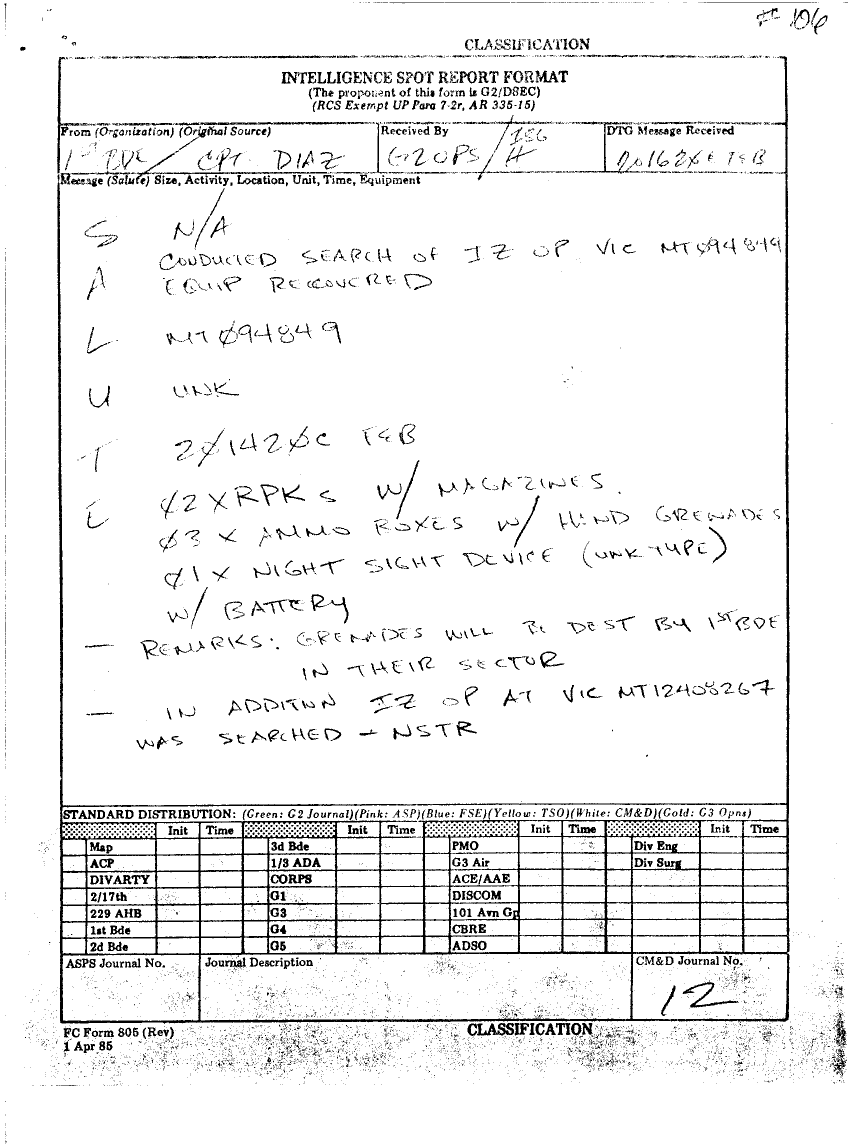 # 106
CLASSIFICATION
INTELLIGENCE SPOT REPORT FORMAT
(The proponent of this form is G2/DSEC)
(RCS Exempt UP Para 7-2r, AR 335-15)
From (Organization) (Original Source) Received By DTG Message Received
1ST BDE / CPT DIAZ G2 OPS / FEB
Message (Salute) Size, Activity, Location, Unit, Time, Equipment
S N/A
CONDUCTED SEARCH OF IZ OP VIC MTØ94849
A EQUIP RECOVERED
L MTØ94849
U UNK
T 2Ø142ØC FEB
E Ø2 X RPKs W/ MAGAZINES.
Ø3 X AMMO BOXES W/ HAND GRENADES
Ø1 X NIGHT SIGHT DEVICE (UNK TYPE)
W/ BATTERY
— REMARKS: GRENADES WILL BE DEST BY 1ST BDE
IN THEIR SECTOR
— IN ADDITION IZ OP AT VIC MT12408267
WAS SEARCHED - NSTR
STANDARD DISTRIBUTION: (Green: G2 Journal)(Pink: ASP)(Blue: FSE)(Yellow: TSO)(White: CM&D)(Gold: G3 Opns)
Init Time Init Time Init Time Init Time
Map 3d Bde PMO Div Eng
ACP 1/3 ADA G3 Air Div Surg
DIVARTY CORPS ACE/AAE
2/17th G1 DISCOM
229 AHB G3 101 Avn Gp
1st Bde G4 CBRE
2d Bde G5 ADSO
ASPS Journal No. Journal Description CM&D Journal No.
12
FC Form 805 (Rev) CLASSIFICATION
1 Apr 85